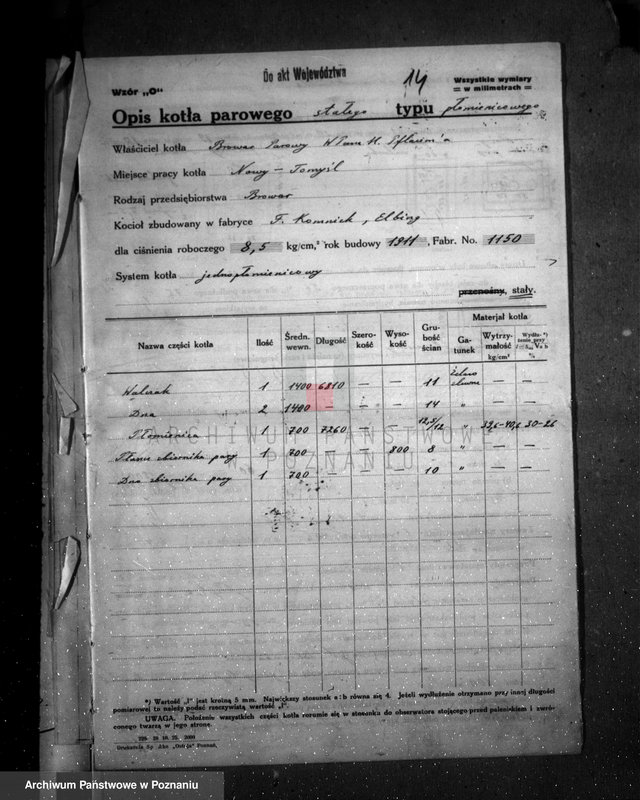 Do akt Województwa
14
Wzór „O"
Wszystkie wymiary
w milimetrach
Opis kotła parowego stałego typu płomienicowego
Właściciel kotła Browar Parowy
Miejsce pracy kotła Nowy-Tomyśl
Rodzaj przedsiębiorstwa Browar
Kocioł zbudowany w fabryce F. Komnick, Elbing
dla ciśnienia roboczego 8,5 kg/cm,² rok budowy 1911, Fabr. No. 1150
System kotła jednopłomienicowy
przenośny, stały.
Nazwa części kotła Ilość Średn. wewn. Długość Szerokość Wysokość Grubość ścian Materjał kotła Gatunek Wytrzymałość kg/cm²
Walczak 1 1400 6810 — — 11 — —
Dna 2 1400 — — — 14 „ — —
Płomienica 1 700 7260 — — 12,5/12 „ 39,6-40,6 30-26
zbiornika pary 1 700 — — 800 8 „ — —
Dna zbiornika pary 1 700 — — — 10 „ — —
ARCHIWUM PAŃSTWOWE
W POZNANIU
*) Wartość „l" jest kroiną 5 mm. Największy stosunek a:b równa się 4. Jeżeli wydłużenie otrzymano przy innej długości
pomiarowej to należy podać rzeczywistą wartość „l".
UWAGA. Położenie wszystkich części kotła rozumie się w stosunku do obserwatora stojącego przed paleniskiem i zwróconego twarzą w jego stronę.
Drukarnia Sp. Akc. „Ostoja" Poznań.
Archiwum Państwowe w Poznaniu